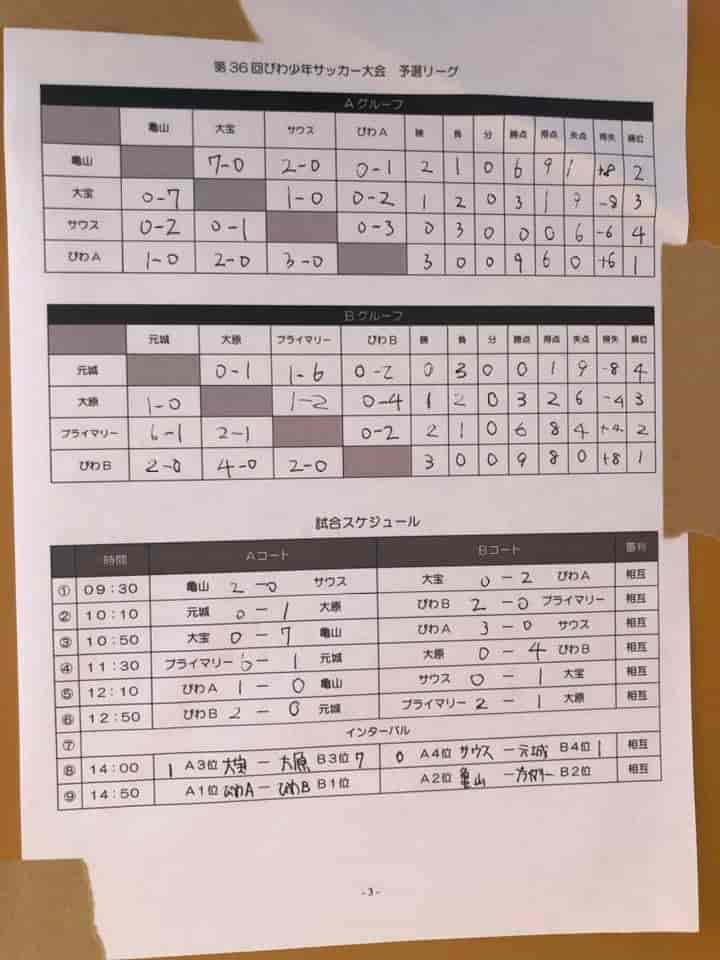 第36回びわ少年サッカー大会 予選リーグ
Aグループ
亀山 大宝 サウス びわA 勝 負 分 勝点 得点 失点 得失 順位
亀山 7-0 2-0 0-1 2 1 0 6 9 1 +8 2
大宝 0-7 1-0 0-2 1 2 0 3 1 9 -8 3
サウス 0-2 0-1 0-3 0 3 0 0 0 6 -6 4
びわA 1-0 2-0 3-0 3 0 0 9 6 0 +6 1
Bグループ
元城 大原 プライマリー びわB 勝 負 分 勝点 得点 失点 得失 順位
元城 0-1 1-6 0-2 0 3 0 0 1 9 -8 4
大原 1-0 1-2 0-4 1 2 0 3 2 6 -4 3
プライマリー 6-1 2-1 0-2 2 1 0 6 8 4 +4 2
びわB 2-0 4-0 2-0 3 0 0 9 8 0 +8 1
試合スケジュール
時間 Aコート Bコート 審判
① 09:30 亀山 2-0 サウス 大宝 0-2 びわA 相互
② 10:10 元城 0-1 大原 びわB 2-0 プライマリー 相互
③ 10:50 大宝 0-7 亀山 びわA 3-0 サウス 相互
④ 11:30 プライマリー 6-1 元城 大原 0-4 びわB 相互
⑤ 12:10 びわA 1-0 亀山 サウス 0-1 大宝 相互
⑥ 12:50 びわB 2-0 元城 プライマリー 2-1 大原 相互
⑦ インターバル
⑧ 14:00 1 A3位 大宝 - 大原 B3位 7 0 A4位 サウス - 元城 B4位 1 相互
⑨ 14:50 A1位 びわA - びわB B1位 A2位 亀山 - B2位 相互
-3-